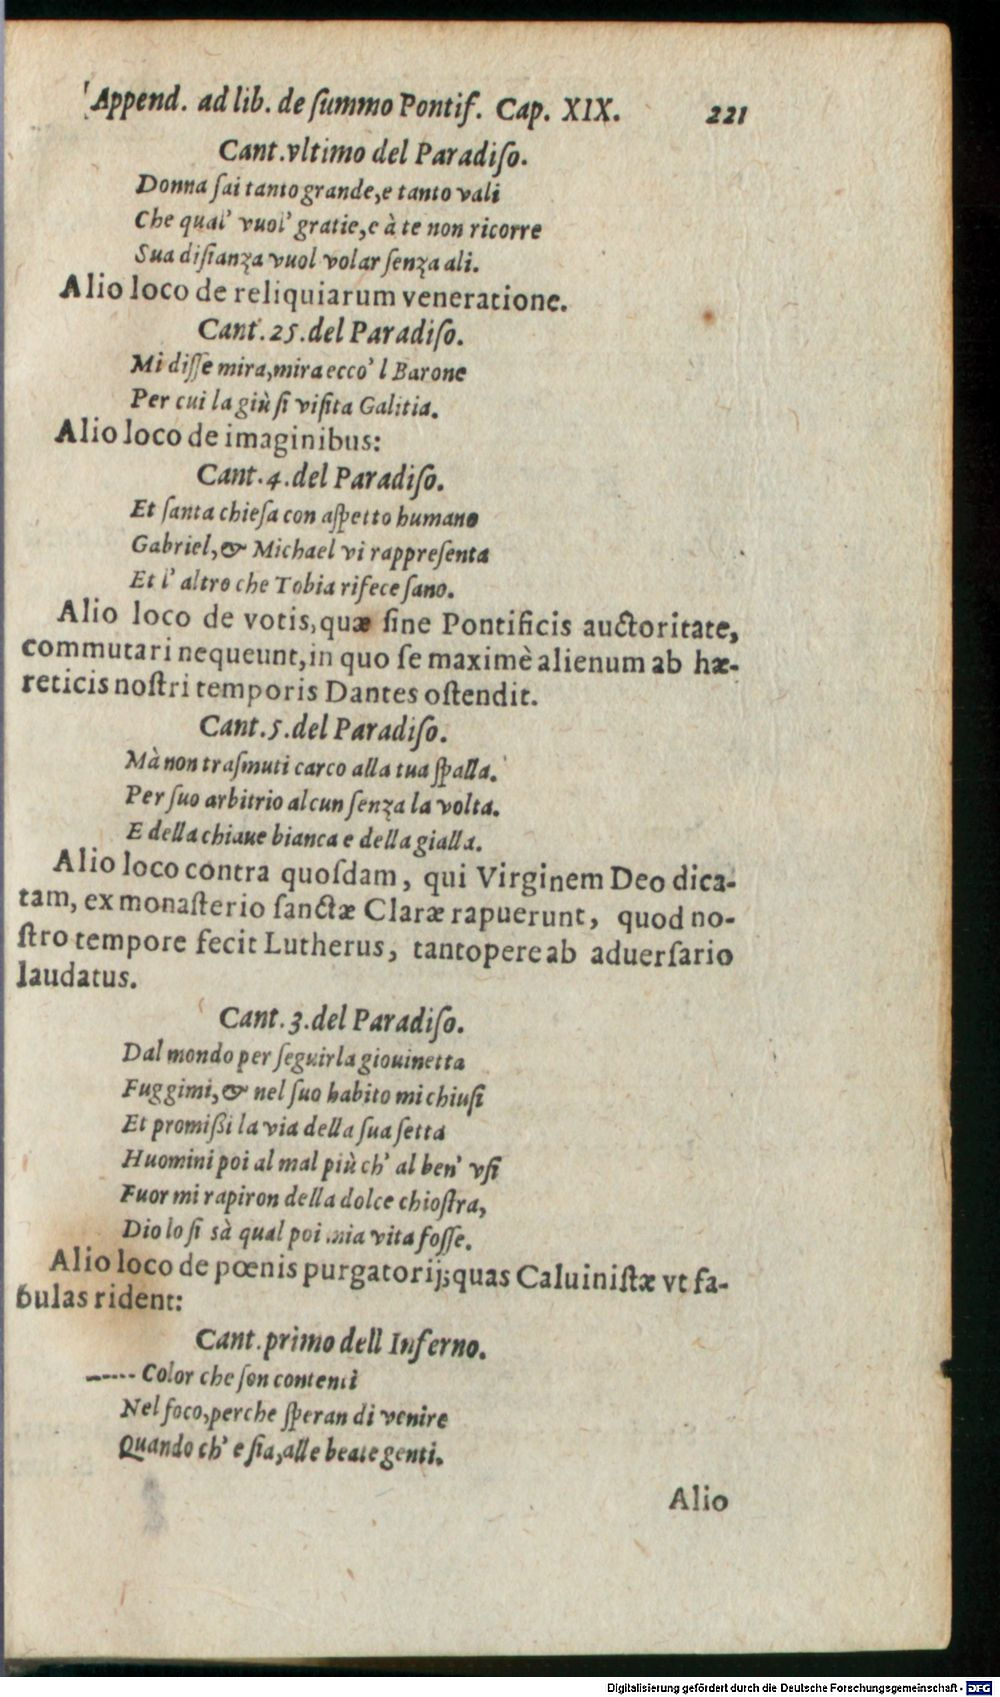 Append. ad lib. de ſummo Pontif. Cap. XIX. 221
Cant. vltimo del Paradiſo.
Donna ſai tanto grande, e tanto vali
Che qual' vuol' gratie, e à te non ricorre
Sua diſianza vuol volar ſenza ali.
Alio loco de reliquiarum veneratione.
Cant. 25. del Paradiſo.
Mi diſſe mira, mira ecco' l Barone
Per cui la giù ſi viſita Galitia.
Alio loco de imaginibus:
Cant. 4. del Paradiſo.
Et ſanta chieſa con aſpetto humano
Gabriel, & Michael vi rappreſenta
Et l' altro che Tobia rifece ſano.
Alio loco de votis, quæ ſine Pontificis auctoritate,
commutari nequeunt, in quo ſe maximè alienum ab hæ-
reticis noſtri temporis Dantes oſtendit.
Cant. 5. del Paradiſo.
Mà non traſmuti carco alla tua ſpalla.
Per ſuo arbitrio alcun ſenza la volta.
E della chiaue bianca e della gialla.
Alio loco contra quoſdam, qui Virginem Deo dica-
tam, ex monaſterio ſanctæ Claræ rapuerunt, quod no-
ſtro tempore fecit Lutherus, tantopere ab aduerſario
laudatus.
Cant. 3. del Paradiſo.
Dal mondo per ſeguirla giouinetta
Fuggimi, & nel ſuo habito mi chiuſi
Et promißi la via della ſua ſetta
Huomini poi al mal più ch' al ben' vſi
Fuor mi rapiron della dolce chioſtra,
Dio lo ſi sà qual poi mia vita foſſe.
Alio loco de pœnis purgatorij; quas Caluiniſtæ vt fa-
bulas rident:
Cant. primo dell Inferno.
----- Color che ſon contenti
Nel foco, perche ſperan di venire
Quando ch' e ſia, alle beate genti.
Alio
Digitalisierung gefördert durch die Deutsche Forschungsgemeinschaft - DFG